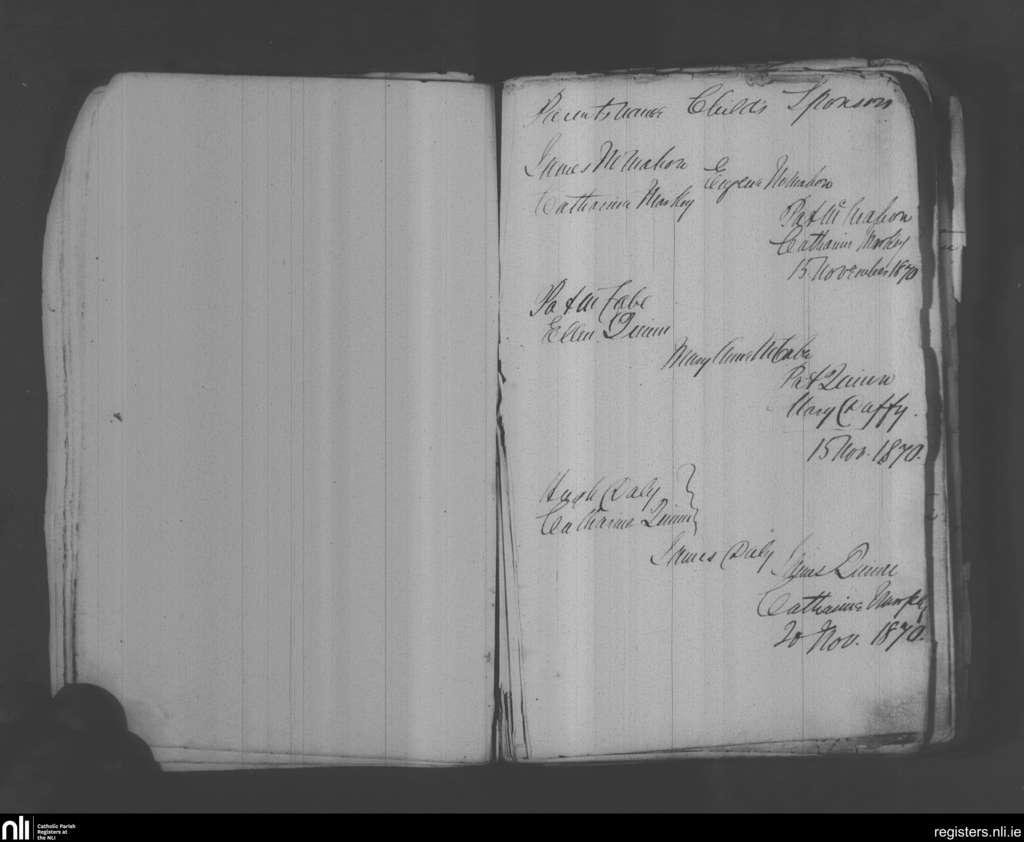 Parents name Child's Sponsors
James McMahon Eugene McMahon
Catharine Markey
Pat McMahon
Catharine Markey
15 November 1870
Pat McCabe
Ellen Quinn
Mary Anne McCabe
Pat Quinn
Mary Duffy.
15 Nov. 1870.
Hugh Daly
Catharine Quinn
James Daly James Quinn
Catharine Murphy
20 Nov. 1870.
nli Catholic Parish
Registers at
the NLI
registers.nli.ie